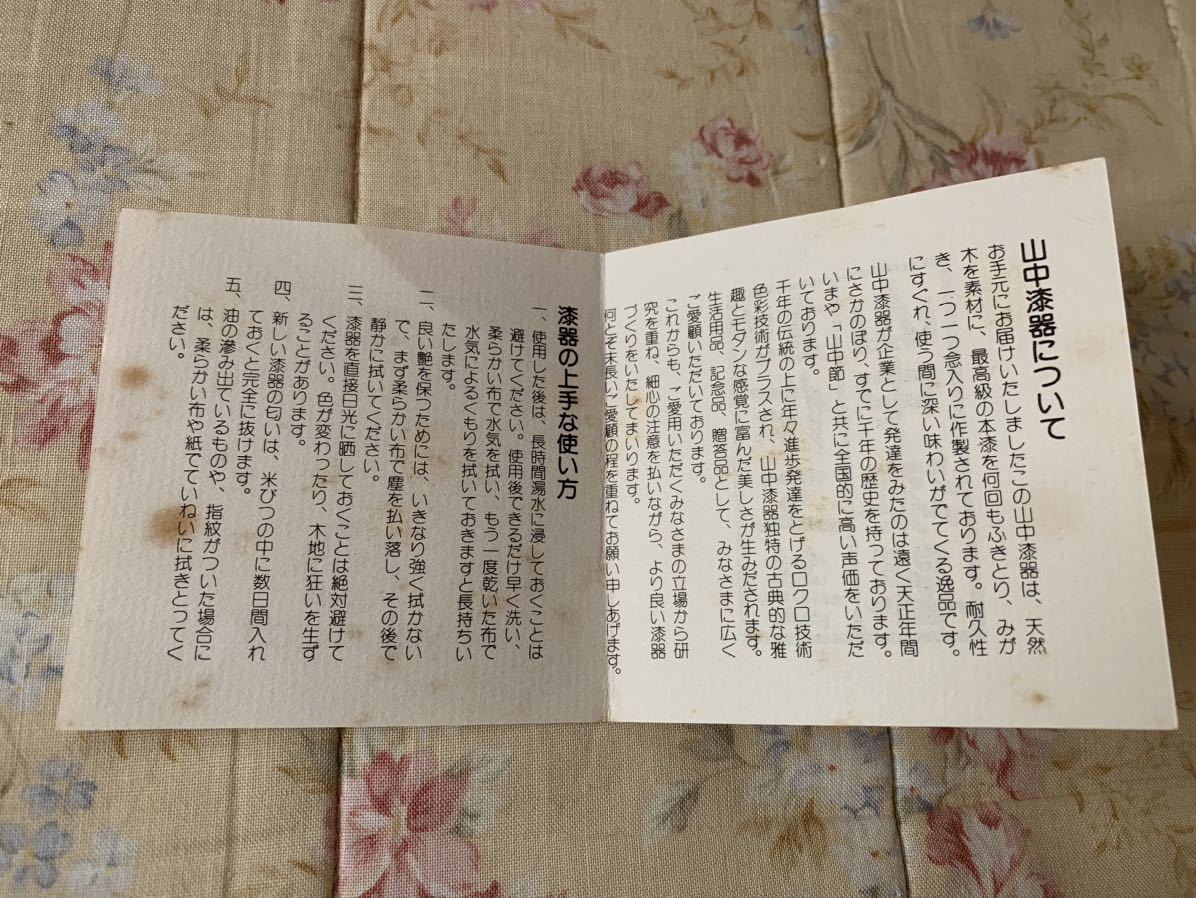 山中漆器について
お手元にお届けいたしましたこの山中漆器は、天然
木を素材に、最高級の本漆を何回もふきとり、みが
き、一つ一つ念入りに作製されております。耐久性
にすぐれ、使う間に深い味わいがでてくる逸品です。
山中漆器が企業として発達をみたのは遠く天正年間
にさかのぼり、すでに千年の歴史を持つております。
いまや「山中節」と共に全国的に高い声価をいただ
いております。
千年の伝統の上に年々進歩発達をとげるロクロ技術
色彩技術がプラスされ、山中漆器独特の古典的な雅
趣とモダンな感覚に富んだ美しさが生みだされます。
生活用品、記念品、贈答品として、みなさまに広く
ご愛顧いただいております。
これからも、ご愛用いただくみなさまの立場から研
究を重ね、細心の注意を払いながら、より良い漆器
づくりをいたしてまいります。
何とぞ末長いご愛顧の程を重ねてお願い申しあげます。
漆器の上手な使い方
一、使用した後は、長時間湯水に浸しておくことは
避けてください。使用後できるだけ早く洗い、
柔らかい布で水気を拭い、もう一度乾いた布で
水気によるくもりを拭いておきますと長持ちい
たします。
二、良い艶を保つためには、いきなり強く拭かない
で、まず柔らかい布で塵を払い落し、その後で
静かに拭いてください。
三、漆器を直接日光に晒しておくことは絶対避けて
ください。色が変わったり、木地に狂いを生ず
ることがあります。
四、新しい漆器の匂いは、米びつの中に数日間入れ
ておくと完全に抜けます。
五、油の滲み出ているものや、指紋がついた場合に
は、柔らかい布や紙でていねいに拭きとってく
ださい。